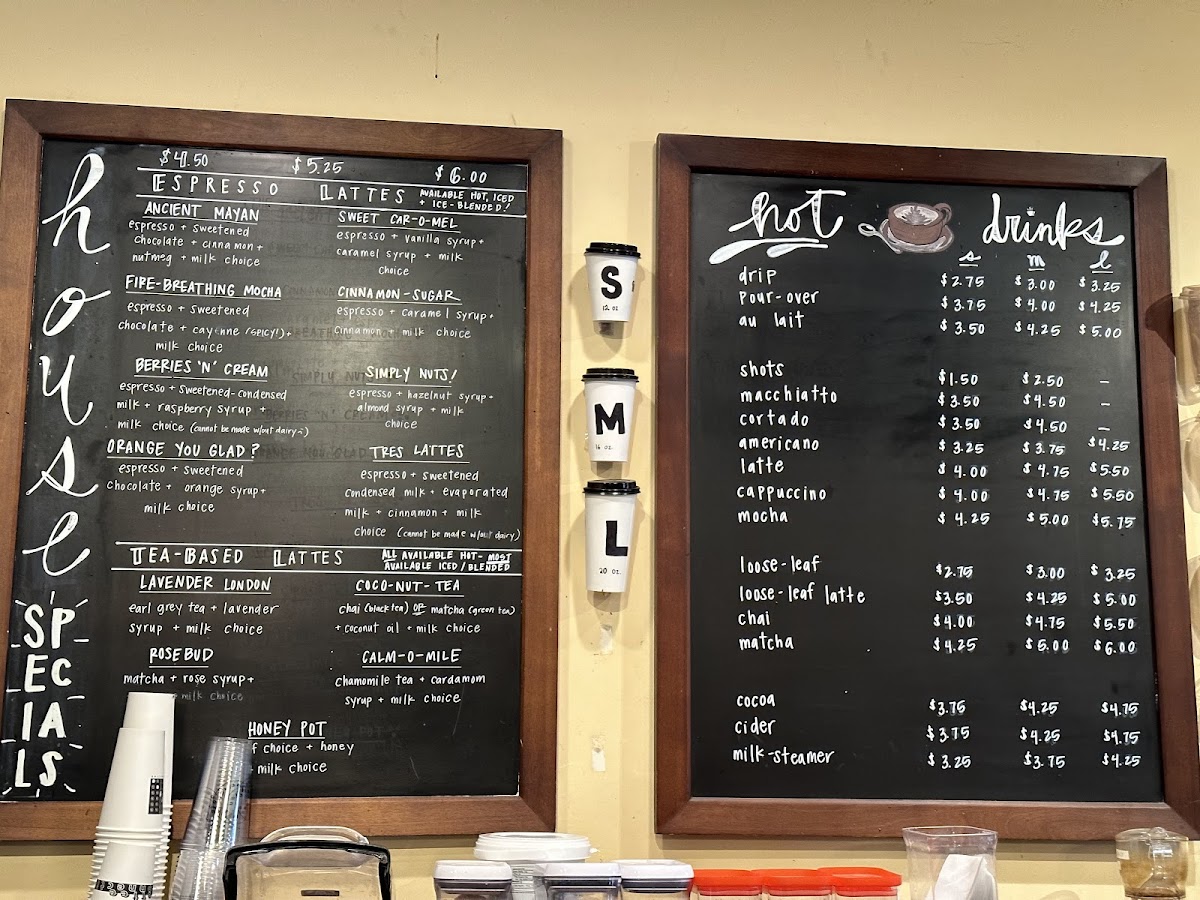 house
SPECIALS
$4.50 $5.25 $6.00
ESPRESSO LATTES
AVAILABLE HOT, ICED
+ ICE-BLENDED!
ANCIENT MAYAN
espresso + sweetened
chocolate + cinnamon +
nutmeg + milk choice
SWEET CAR-O-MEL
espresso + vanilla syrup +
caramel syrup + milk
choice
FIRE-BREATHING MOCHA
espresso + sweetened
chocolate + cayenne (SPICY!) +
milk choice
CINNAMON-SUGAR
espresso + caramel syrup +
cinnamon + milk choice
BERRIES 'N' CREAM
espresso + sweetened-condensed
milk + raspberry syrup +
milk choice (cannot be made w/out dairy :)
SIMPLY NUTS!
espresso + hazelnut syrup +
almond syrup + milk
choice
ORANGE YOU GLAD?
espresso + sweetened
chocolate + orange syrup +
milk choice
TRES LATTES
espresso + sweetened
condensed milk + evaporated
milk + cinnamon + milk
choice (cannot be made w/out dairy)
TEA-BASED LATTES
ALL AVAILABLE HOT - MOST
AVAILABLE ICED / BLENDED
LAVENDER LONDON
earl grey tea + lavender
syrup + milk choice
COCO-NUT-TEA
chai (black tea) or matcha (green tea)
+ coconut oil + milk choice
ROSEBUD
matcha + rose syrup +
milk choice
CALM-O-MILE
chamomile tea + cardamom
syrup + milk choice
HONEY POT
f choice + honey
milk choice
S
12 oz.
M
16 oz.
L
20 oz.
hot drinks
s m l
drip $2.75 $3.00 $3.25
pour-over $3.75 $4.00 $4.25
au lait $3.50 $4.25 $5.00
shots $1.50 $2.50 –
macchiatto $3.50 $4.50 –
cortado $3.50 $4.50 –
americano $3.25 $3.75 $4.25
latte $4.00 $4.75 $5.50
cappuccino $4.00 $4.75 $5.50
mocha $4.25 $5.00 $5.75
loose-leaf $2.75 $3.00 $3.25
loose-leaf latte $3.50 $4.25 $5.00
chai $4.00 $4.75 $5.50
matcha $4.25 $5.00 $6.00
cocoa $3.75 $4.25 $4.75
cider $3.75 $4.25 $4.75
milk-steamer $3.25 $3.75 $4.25